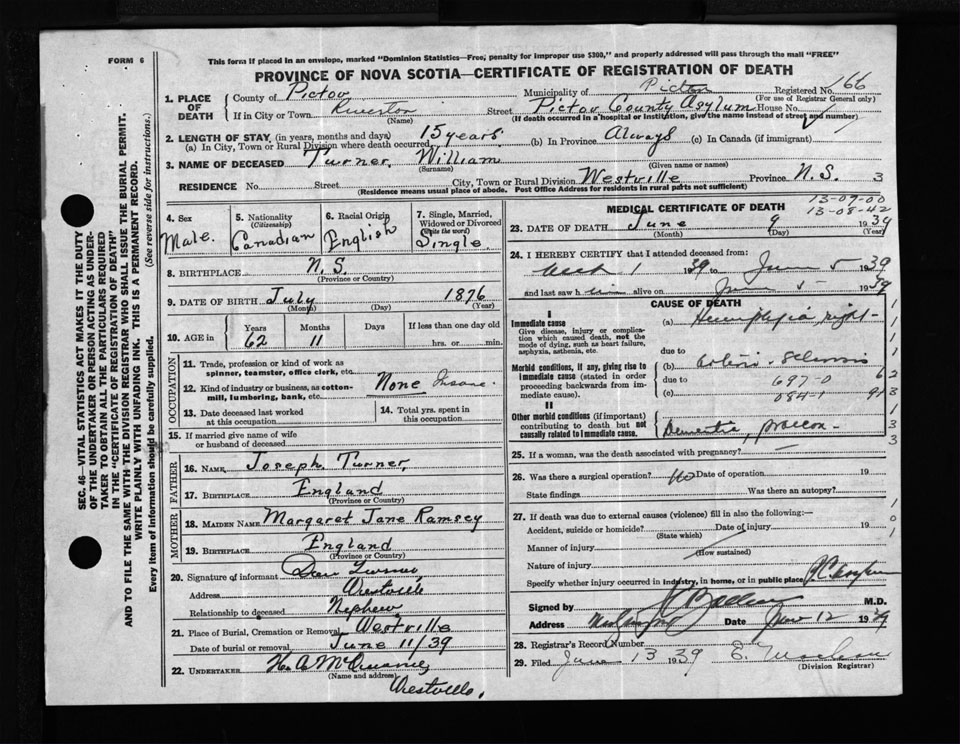 FORM 6
This form if placed in an envelope, marked "Dominion Statistics—Free, penalty for improper use $300," and properly addressed will pass through the mail "FREE"
PROVINCE OF NOVA SCOTIA—CERTIFICATE OF REGISTRATION OF DEATH
1. PLACE OF DEATH
County of Pictou Municipality of Pictou Registered No. 66
(For use of Registrar General only)
If in City or Town Riverton Street Pictou County Asylum House No.
(Name) (If death occurred in a hospital or institution, give the name instead of street and number)
2. LENGTH OF STAY (in years, months and days)
(a) In City, Town or Rural Division where death occurred 15 years (b) In Province Always (c) In Canada (if immigrant)
3. NAME OF DECEASED Turner, William
(Surname) (Given name or names)
RESIDENCE No. Street City, Town or Rural Division Westville Province N.S. 3
(Residence means usual place of abode. Post Office Address for residents in rural parts not sufficient)
4. Sex
Male.
5. Nationality
(Citizenship)
Canadian
6. Racial Origin
English
7. Single, Married, Widowed or Divorced
(Write the word)
Single
8. BIRTHPLACE N.S.
(Province or Country)
9. DATE OF BIRTH July 1876
(Month) (Day) (Year)
10. AGE in
Years Months Days If less than one day old
62 11 hrs. or min.
OCCUPATION
11. Trade, profession or kind of work as
spinner, teamster, office clerk, etc.
12. Kind of industry or business, as cotton-
mill, lumbering, bank, etc. None Insane.
13. Date deceased last worked
at this occupation
14. Total yrs. spent in
this occupation
15. If married give name of wife
or husband of deceased
FATHER
16. NAME Joseph Turner
17. BIRTHPLACE England
(Province or Country)
MOTHER
18. MAIDEN NAME Margaret Jane Ramsey
19. BIRTHPLACE England
(Province or Country)
20. Signature of informant Dan Turner
Address Westville
Relationship to deceased Nephew
21. Place of Burial, Cremation or Removal Westville
Date of burial or removal June 11/39
22. UNDERTAKER
(Name and address)
Westville.
MEDICAL CERTIFICATE OF DEATH
13-07-00
13-08-42
23. DATE OF DEATH June 9 1939
(Month) (Day) (Year)
24. I HEREBY CERTIFY that I attended deceased from:
1 1939 to June 5 1939
and last saw him alive on June 5 1939
CAUSE OF DEATH
I
Immediate cause
Give disease, injury or complica-
tion which caused death, not the
mode of dying, such as heart failure,
asphyxia, asthenia, etc.
(a) Hemiplegia right
due to
Morbid conditions, if any, giving rise to
immediate cause (stated in order
proceeding backwards from im-
mediate cause).
(b) arterio-sclerosis
due to 697-0
(c) 084-1
II
Other morbid conditions (if important)
contributing to death but not
causally related to immediate cause.
Dementia, praecox
25. If a woman, was the death associated with pregnancy?
26. Was there a surgical operation? No Date of operation 19
State findings Was there an autopsy?
27. If death was due to external causes (violence) fill in also the following:—
Accident, suicide or homicide? Date of injury 19
(State which)
Manner of injury
(How sustained)
Nature of injury
Specify whether injury occurred in industry, in home, or in public place
Signed by M.D.
Address Date June 12 1939
28. Registrar's Record Number
29. Filed June 13 1939
(Division Registrar)
SEC. 46—VITAL STATISTICS ACT MAKES IT THE DUTY
OF THE UNDERTAKER OR PERSON ACTING AS UNDER-
TAKER TO OBTAIN ALL THE PARTICULARS REQUIRED
IN THE "CERTIFICATE OF REGISTRATION OF DEATH"
AND TO FILE THE SAME WITH THE DIVISION REGISTRAR WHO SHALL ISSUE THE BURIAL PERMIT.
WRITE PLAINLY WITH UNFADING INK. THIS IS A PERMANENT RECORD.
Every item of information should be carefully supplied. (See reverse side for instructions.)